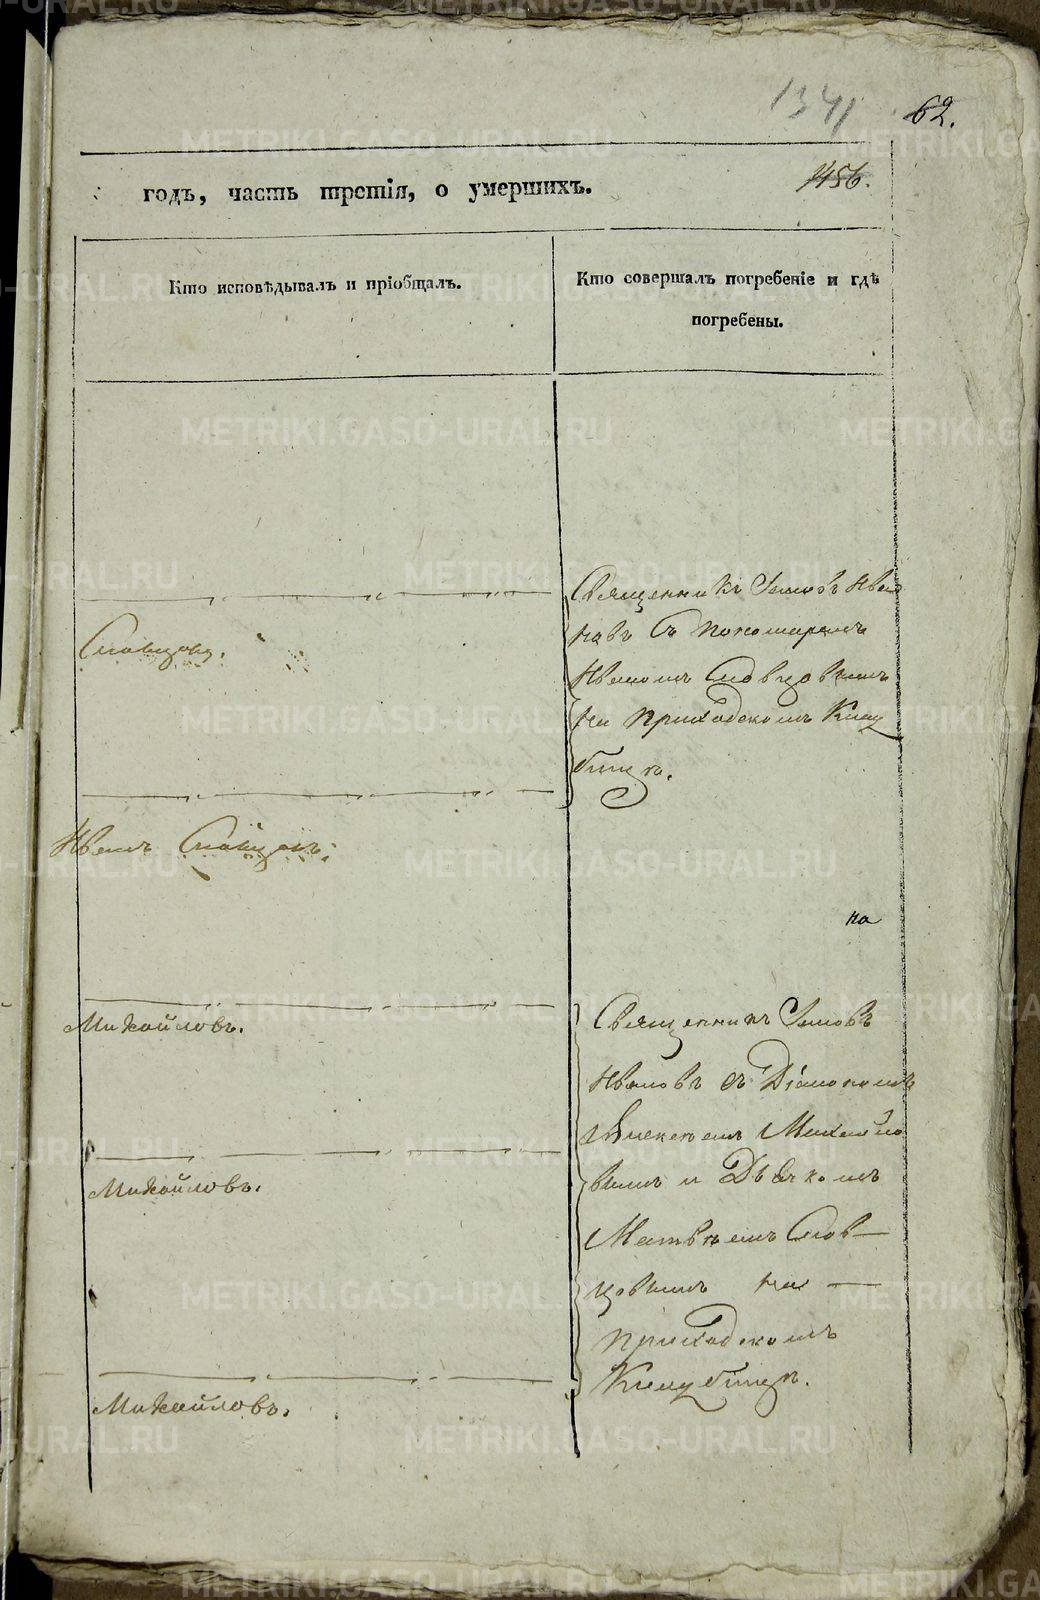 1341
62.
годъ, часть третія, о умершихъ.
1456.
Кто исповѣдывалъ и пріобщалъ.
Кто совершалъ погребеніе и гдѣ
погребены.
Священникъ Іаковъ Ива
новъ съ пономаремъ
Словцовъ.
Иваномъ Словцовымъ
на приходскомъ клад
бищѣ.
Иванъ Словцовъ.
на
Михайловъ.
Священникъ Іаковъ
Ивановъ съ Діакономъ
Алексѣемъ Михайло
Михайловъ.
вымъ и Дьячкомъ
Матвѣемъ Слов
цовымъ на
приходскомъ
кладбищѣ.
Михайловъ.
METRIKI.GASO-URAL.RU